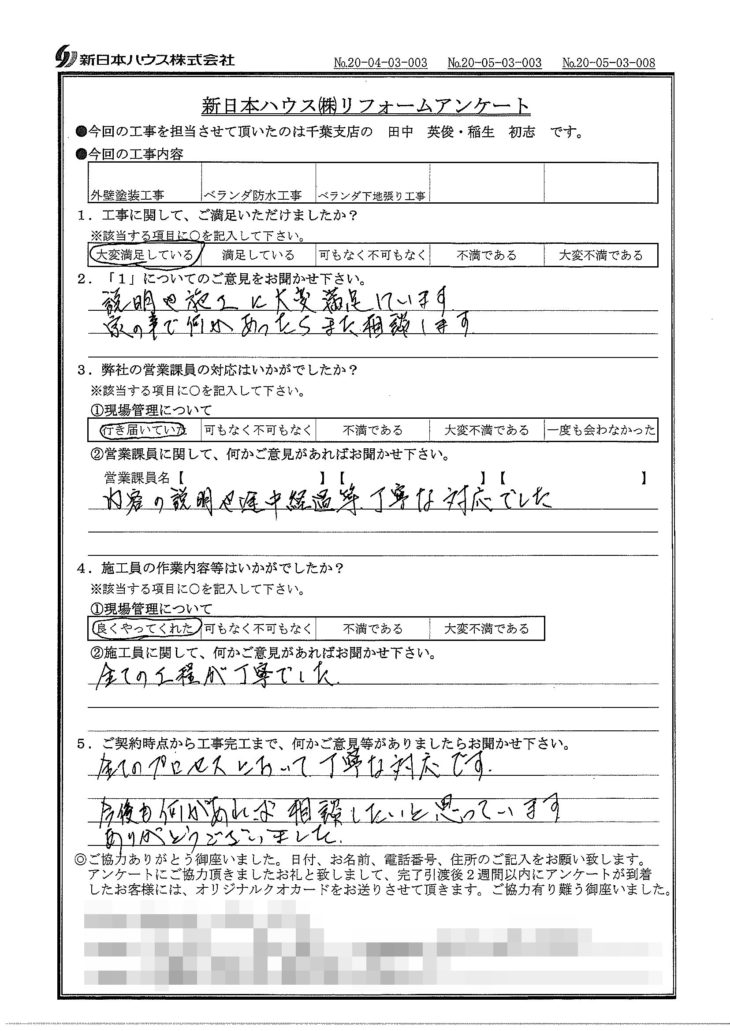 新日本ハウス株式会社
No.20-04-03-003 No.20-05-03-003 No.20-05-03-008
新日本ハウス㈱リフォームアンケート
●今回の工事を担当させて頂いたのは千葉支店の 田中 英俊・稲生 初志 です。
●今回の工事内容
外壁塗装工事 ベランダ防水工事 ベランダ下地張り工事
1．工事に関して、ご満足いただけましたか？
※該当する項目に○を記入して下さい。
大変満足している 満足している 可もなく不可もなく 不満である 大変不満である
2．「1」についてのご意見をお聞かせ下さい。
説明や施工に大変満足しています
家の事で何かあったらまた相談します
3．弊社の営業課員の対応はいかがでしたか？
※該当する項目に○を記入して下さい。
①現場管理について
行き届いていた 可もなく不可もなく 不満である 大変不満である 一度も会わなかった
②営業課員に関して、何かご意見があればお聞かせ下さい。
営業課員名【 】【 】【 】
内容の説明や途中経過等、丁寧な対応でした
4．施工員の作業内容等はいかがでしたか？
※該当する項目に○を記入して下さい。
①現場管理について
良くやってくれた 可もなく不可もなく 不満である 大変不満である
②施工員に関して、何かご意見があればお聞かせ下さい。
全ての工程が丁寧でした.
5．ご契約時点から工事完工まで、何かご意見等がありましたらお聞かせ下さい。
全てのプロセスにおいて丁寧な対応です.
今後も何かあれば相談したいと思っています
ありがとうございました.
◎ご協力ありがとう御座いました。日付、お名前、電話番号、住所のご記入をお願い致します。
アンケートにご協力頂きましたお礼と致しまして、完了引渡後2週間以内にアンケートが到着
したお客様には、オリジナルクオカードをお送りさせて頂きます。ご協力有り難う御座いました。